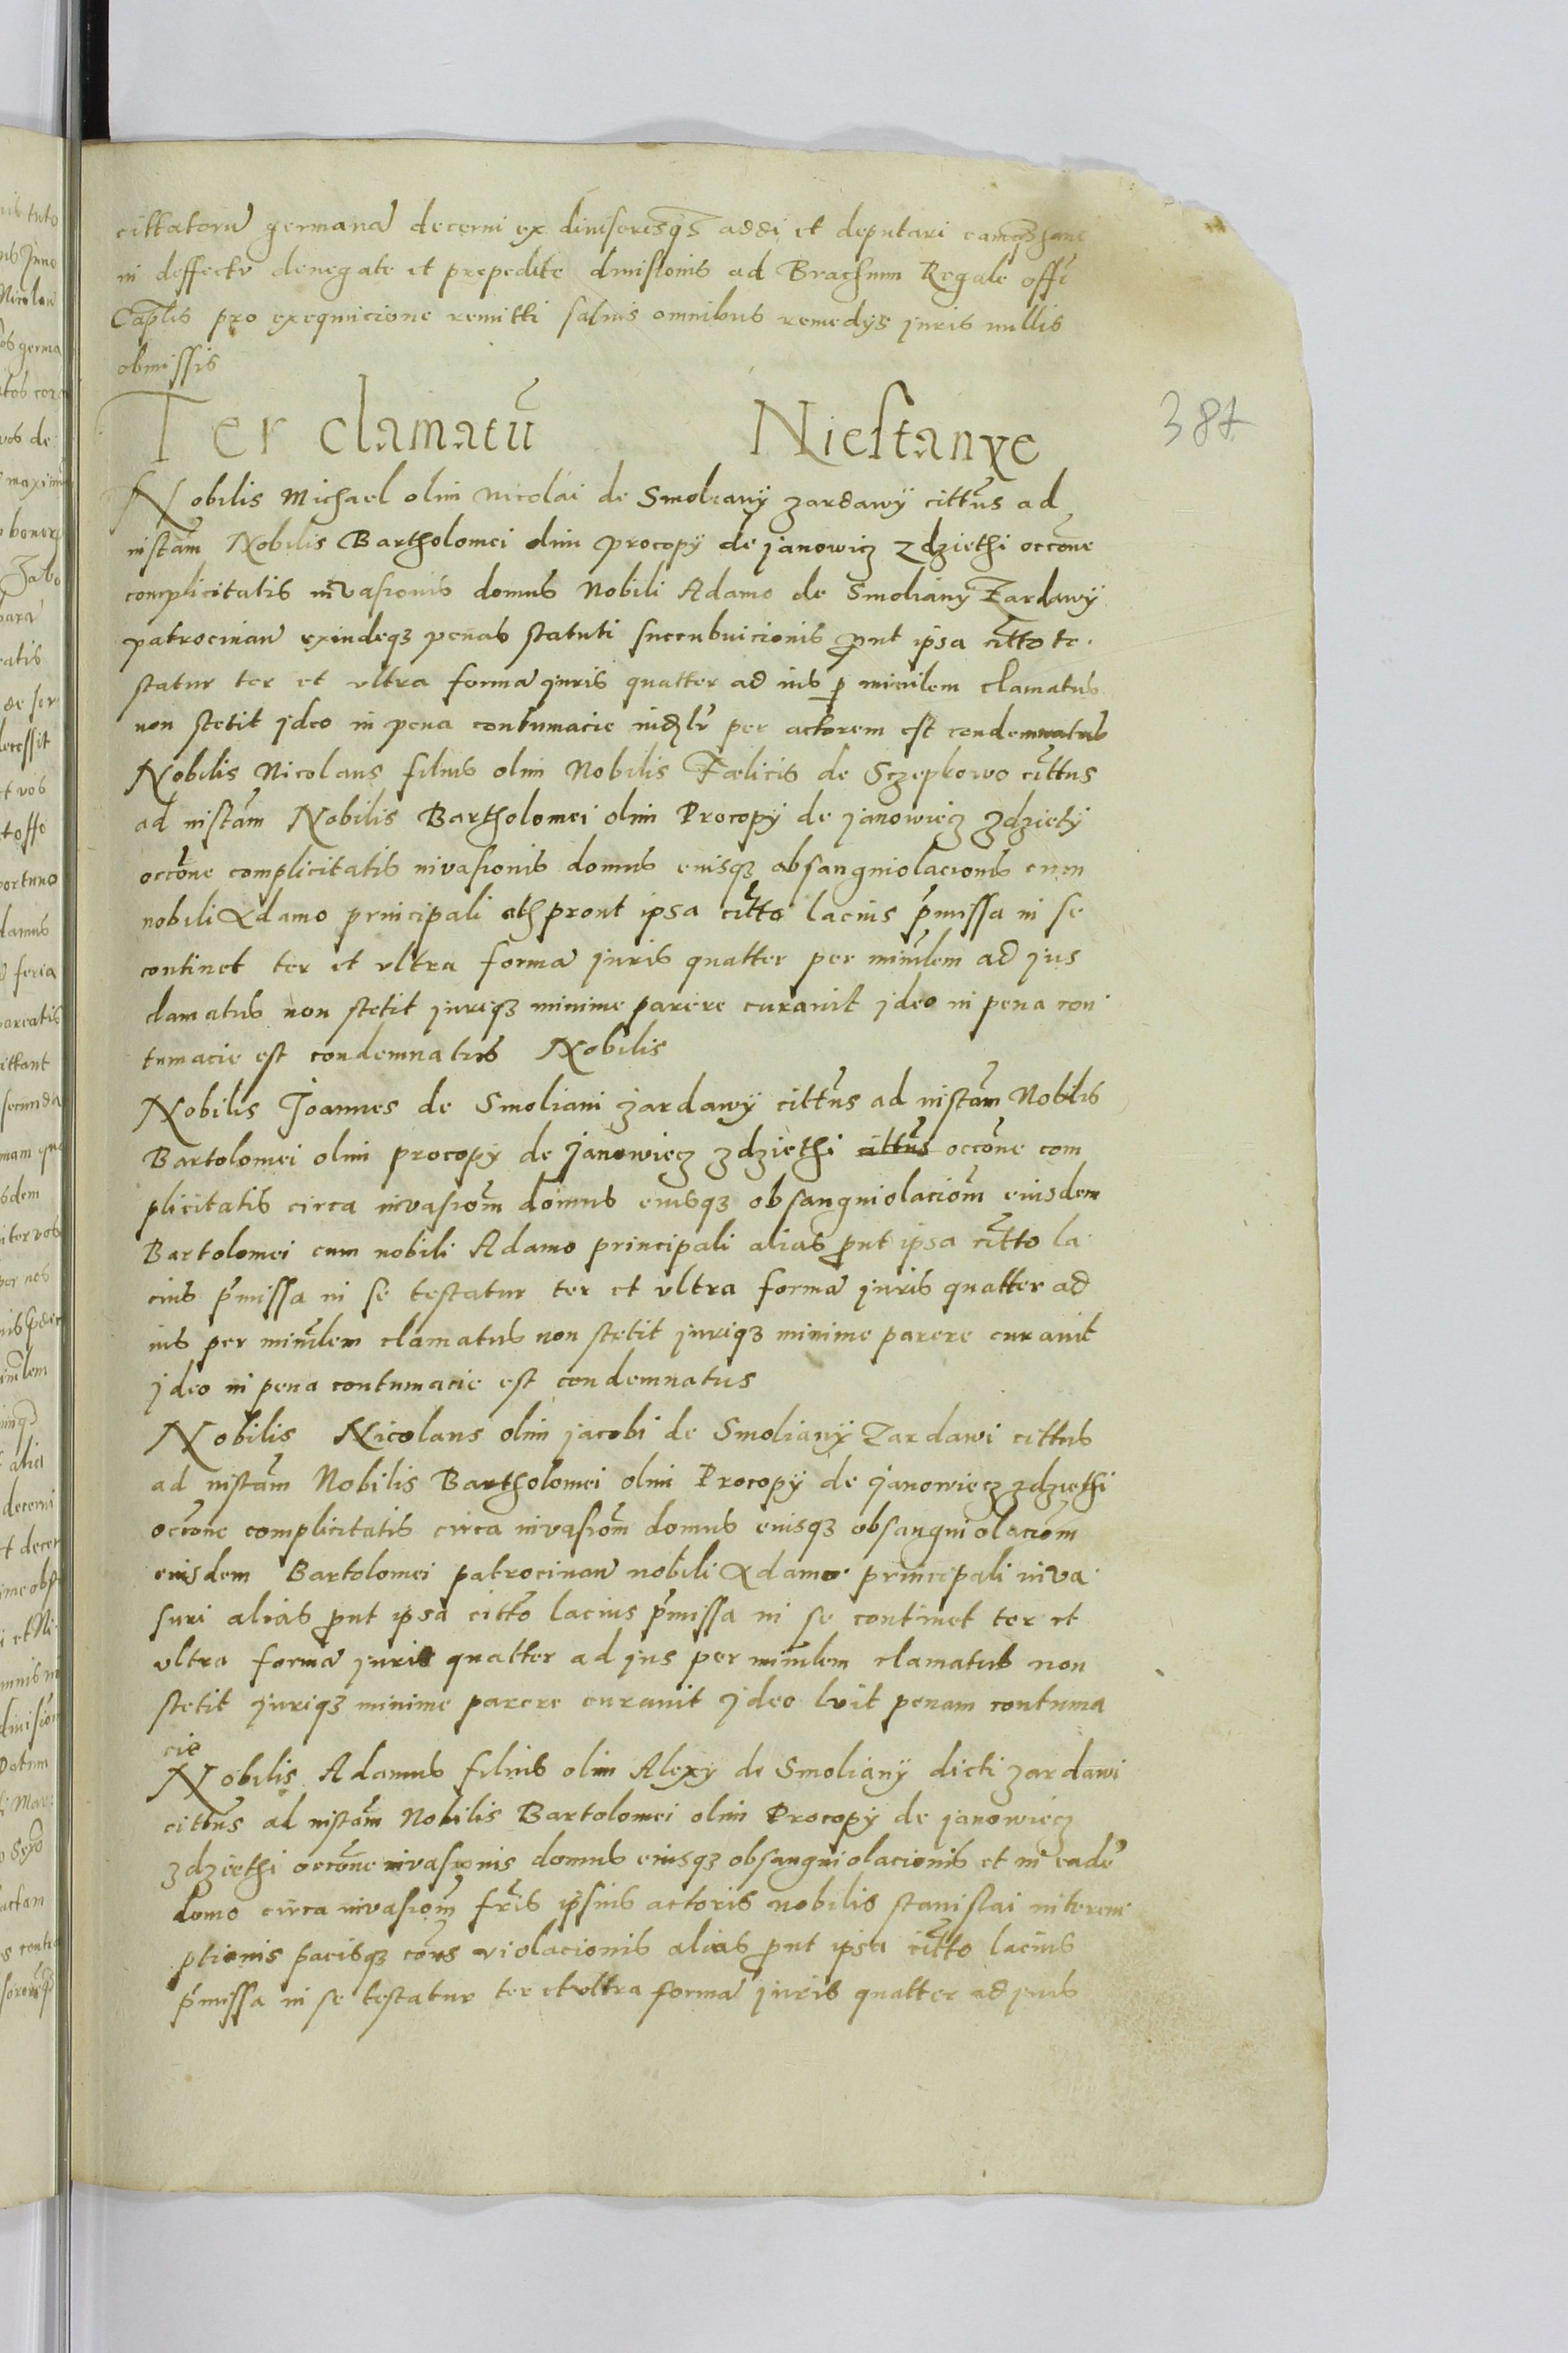 cittatorū germanā decerni ex diuisoresq̃ addi et deputari
in deffectu denegate et prepedite diuisionis ad Brachium Regale offi
Cap̃lis pro exequucione remitti saluis omnibus remedys juris nullis
obmissis
Ter clamatū Niestanye
387
Nobilis Michael olim Nicolai de Smoliany zardawÿ cittũs ad
instãm Nobilis Bartholomei olim procopÿ de janowicz zdziethi occõne
complicitatis invasionis domus Nobili Adamo de Smoliany Zardawÿ
patrocinan̄ exindeqz penas statuti succubuicionis p̱nt ipsa citto te
statur ter et vltra formā juris quatter ad ius p̱ minĩlem clamatus
non stetit jdeo in pena contumacie per actorem est condemnatus
Nobilis Nicolaus filius olim Nobilis Fœlicis de Sczepkowo cittus
ad instãm Nobilis Bartholomei olim Procopÿ de janowiecz zdzietÿ
occõne complicitatis invasionis domus eiusqz obsanguiolacionis cum
nobili Adamo principali prout ipsa citto lacius p̃missa in se
continet ter et vltra formā juris quatter per minĩlem ad jus
clamatus non stetit juriqz minime parere curauit jdeo in pena con
tumacie est condemnatus Nobilis
Nobilis Joannes de Smoliani zardawÿ cittũs ad instãm Nobilis
Bartolomei olim procopÿ de janowiecz zdziethi cittũs occõne com
plicitatis circa invasiom̃ domus eiusqz obsanguiolaciom̃ eiusdem
Bartolomei cum nobili Adamo principali alias p̱nt ipsa citto la
cius p̃missa in se testatur ter et vltra formā juris quatter ad
ius per minĩlem clamatus non stetit juriqz minime parere curauit
jdeo in pena contumacie est condemnatus
Nobilis Nicolaus olim jacobi de Smolianÿ Zardawi cittus
ad instãm Nobilis Bartholomei olim Procopÿ de janowiecz zdziethi
occõne complicitatis circa invasiom̃ domus eiusqz obsanguiolaciom̃
eiusdem Bartolomei patrocinan̄ nobili Adamo principali inva
suri alias p̱nt ipsa citto lacius p̃missa in se continet ter et
vltra formā juris quatter ad jus per minĩlem clamatus non
stetit juriqz minime parere curauit jdeo luit penam contuma
cie
Nobilis Adamus filius olim Alexÿ de Smolianÿ dicti zardawi
cittũs ad instãm Nobilis Bartolomei olim Procopÿ de janowiecz
zdziethi occõne invasionis domus eiusqz obsanguiolacionis et in eadē
domo circa invasiom̃ fr̃is ipsius actoris nobilis stanislai interem
ptionis pacisqz cõis violacionis alias p̱nt ipsa citto lacius
p̃missa in se testatur ter et vltra formā juris quatter ad jus